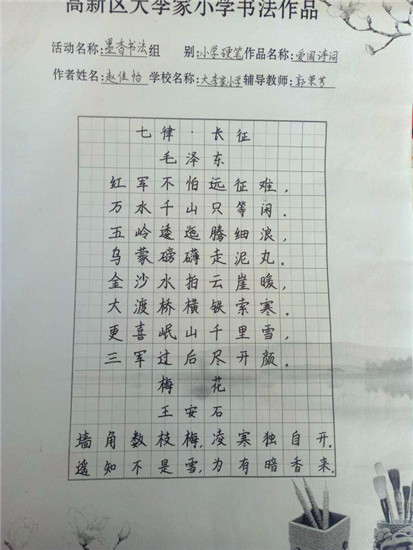 高新区大李家小学书法作品
活动名称:墨香书法组 别:小学硬笔作品名称:爱国诗词
作者姓名:赵佳怡学校名称:大李家小学辅导教师:郭荣芳
七律·长征
毛泽东
红军不怕远征难,
万水千山只等闲.
五岭逶迤腾细浪,
乌蒙磅礴走泥丸.
金沙水拍云崖暖,
大渡桥横铁索寒.
更喜岷山千里雪,
三军过后尽开颜.
梅花
王安石
墙角数枝梅,凌寒独自开.
遥知不是雪,为有暗香来.